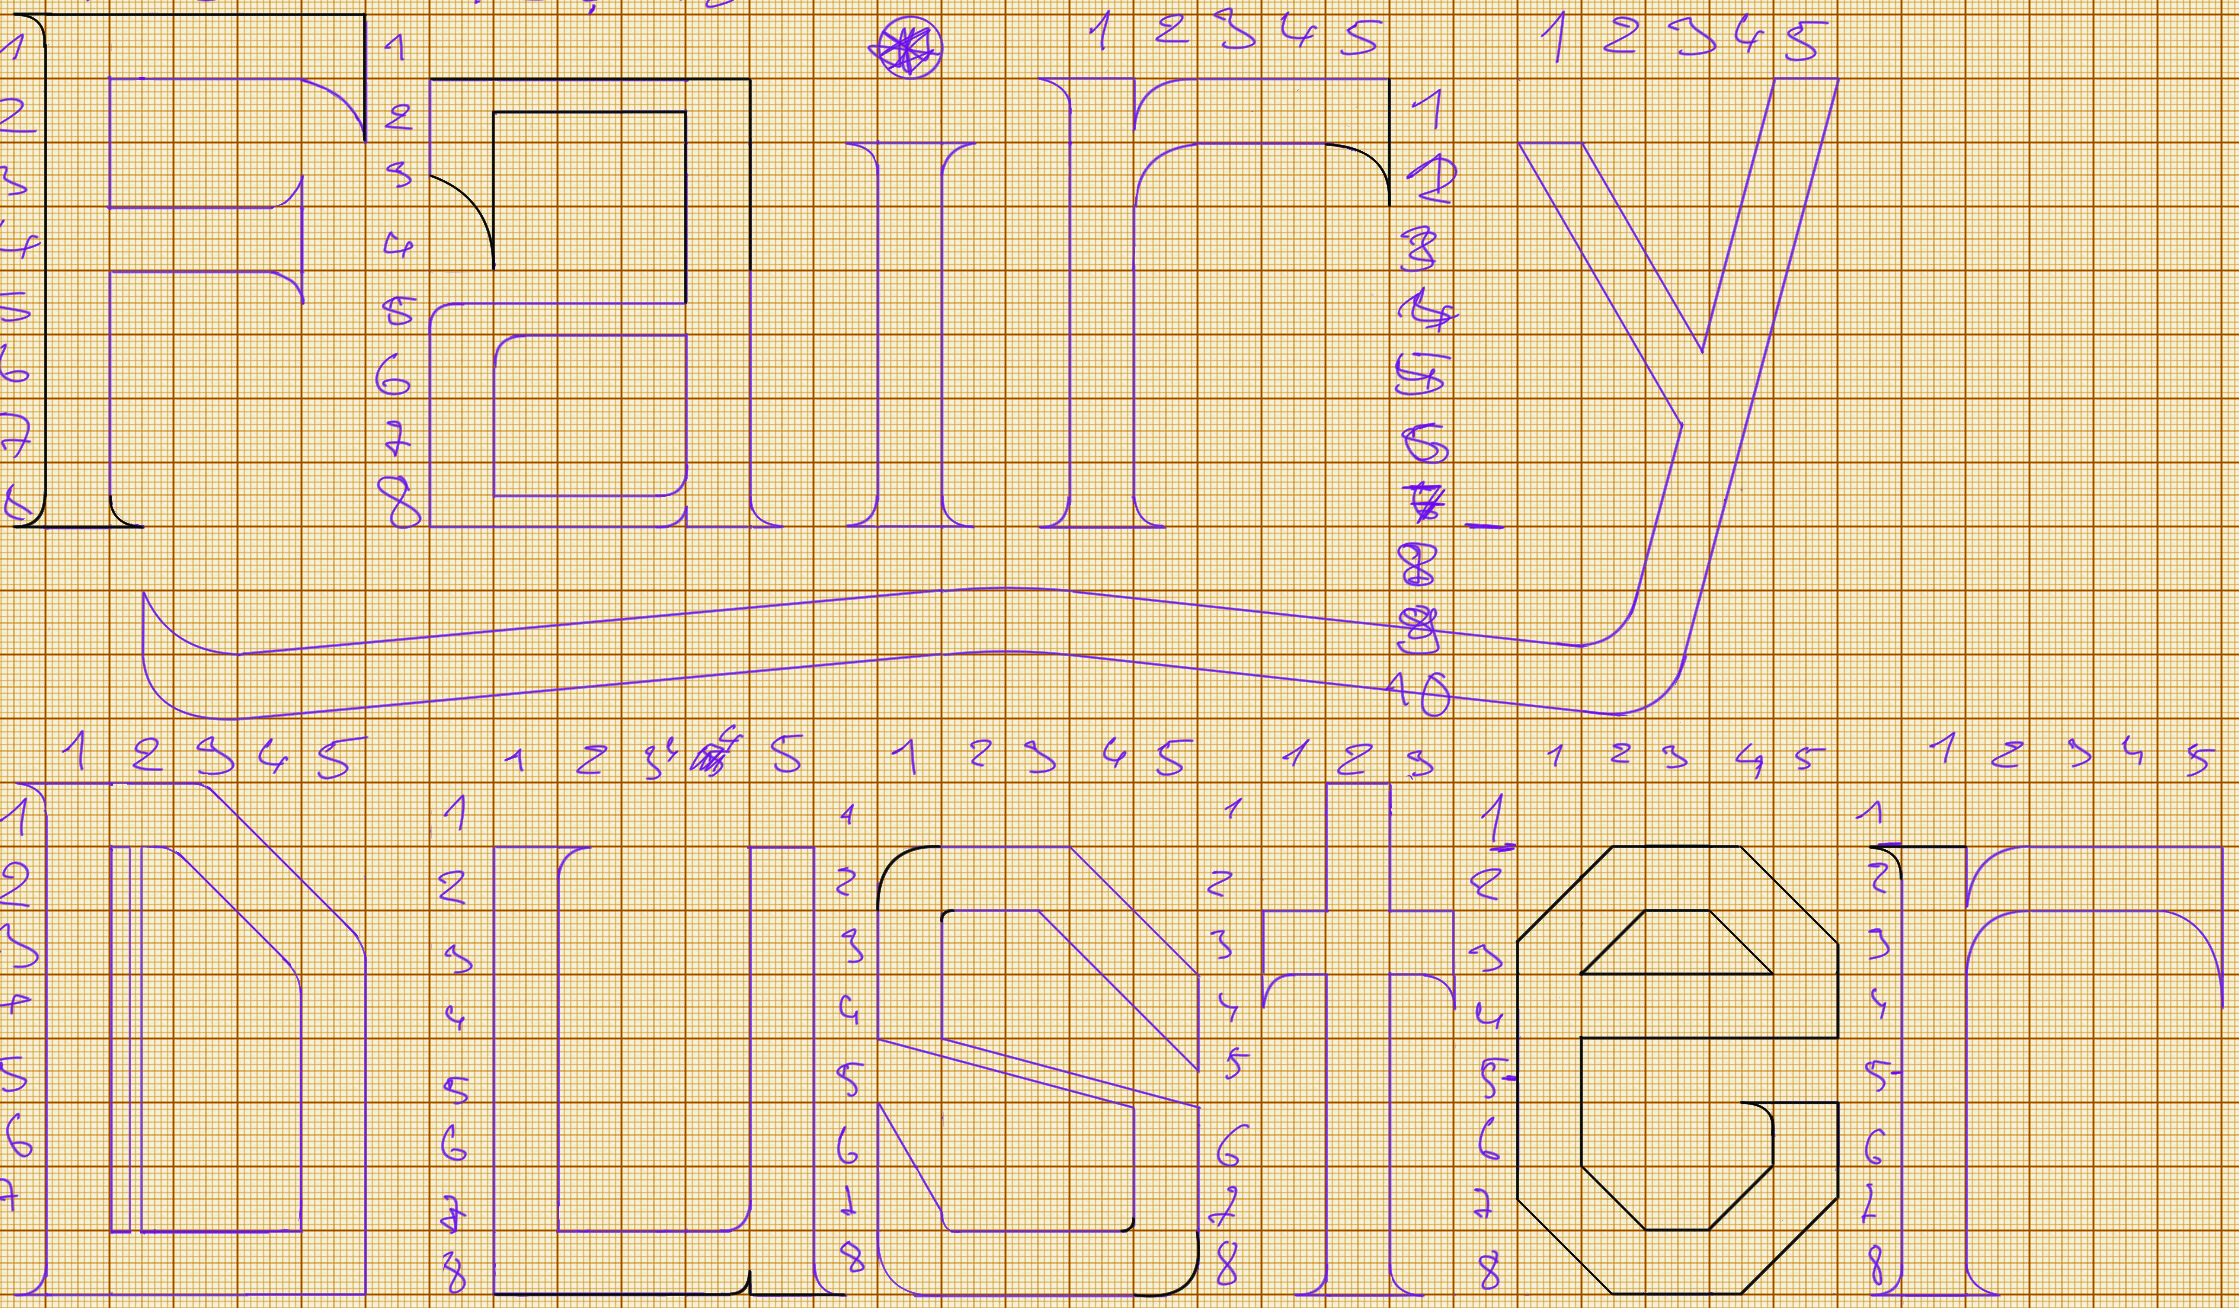 1 2 3 4 5 1 2 3 4 5
Fairy
1 2 3 4 5 6 7 8
1 2 3 4 5 6 7 8 9 10
1 2 3 4 5 1 2 3 4 5 1 2 3 4 5 1 2 3 1 2 3 4 5 1 2 3 4 5
Duster
1 2 3 4 5 6 7
1 2 3 4 5 6 7 8
1 2 3 4 5 6 7 8
1 2 3 4 5 6 7 8
1 2 3 4 5 6 7 8
1 2 3 4 5 6 7 8